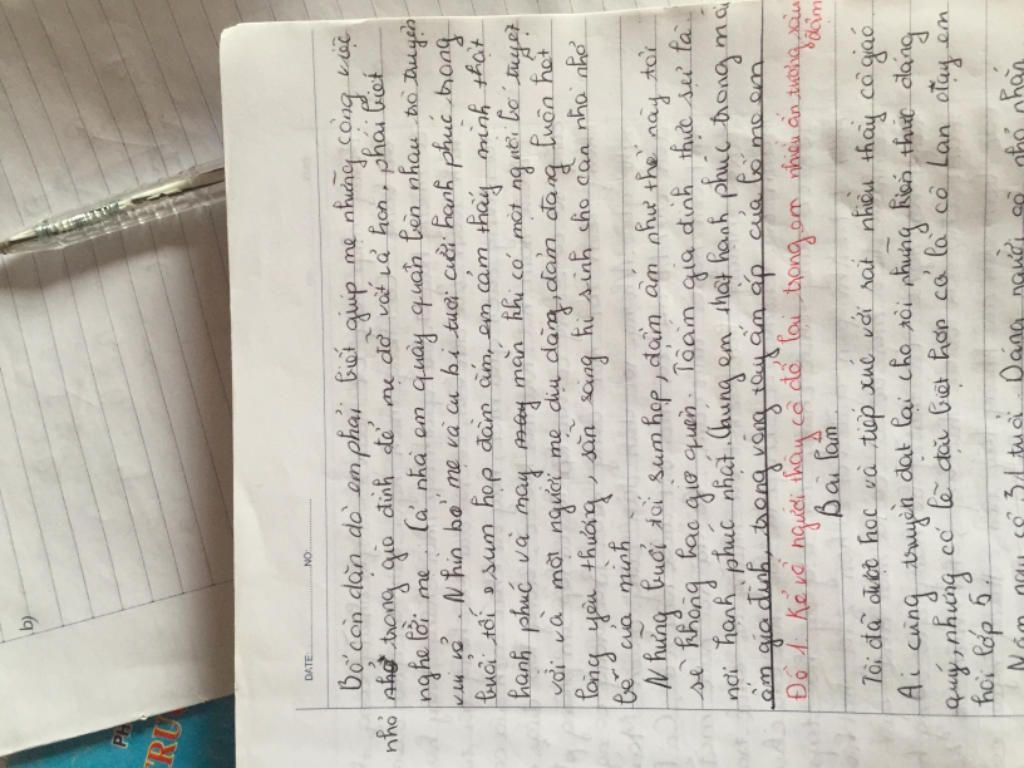 b)
PH
TRU
DATE: NO:
Bố còn dặn dò em phải biết giúp mẹ những công việc
nhỏ trong gia đình để mẹ đỡ vất vả hơn, phải biết
nghe lời mẹ. Cả nhà em quây quần bên nhau trò truyện
vui vẻ. Nhìn bố mẹ và cu bi tươi cười hạnh phúc trong
buổi tối sum họp đầm ấm, em cảm thấy mình thật
hạnh phúc và may mắn khi có một người bố tuyệt
vời và một người mẹ dịu dàng, đảm đang luôn hết
lòng yêu thương, sẵn sàng hi sinh cho các con nhỏ
bé của mình
Những buổi tối sum họp, đầm ấm như thế này tôi
sẽ không bao giờ quên. Toàn gia đình thực sự là
nơi hạnh phúc nhất. Chúng em thật hạnh phúc trong mái
ấm gia đình, trong vòng tay ấm áp của bố mẹ em
Đề 1 Kể về người thầy cô để lại trong em nhiều ấn tượng sâu
đậm
Bài làm
Tôi đã được học và tiếp xúc với rất nhiều thầy cô giáo
Ai cũng truyền đạt lại cho tôi những kiến thức đáng
quý, nhưng có lẽ đặc biệt hơn cả là cô Lan dạy em
hồi lớp 5.
Năm nay cô 31 tuổi. Dáng người cô nhỏ nhắn